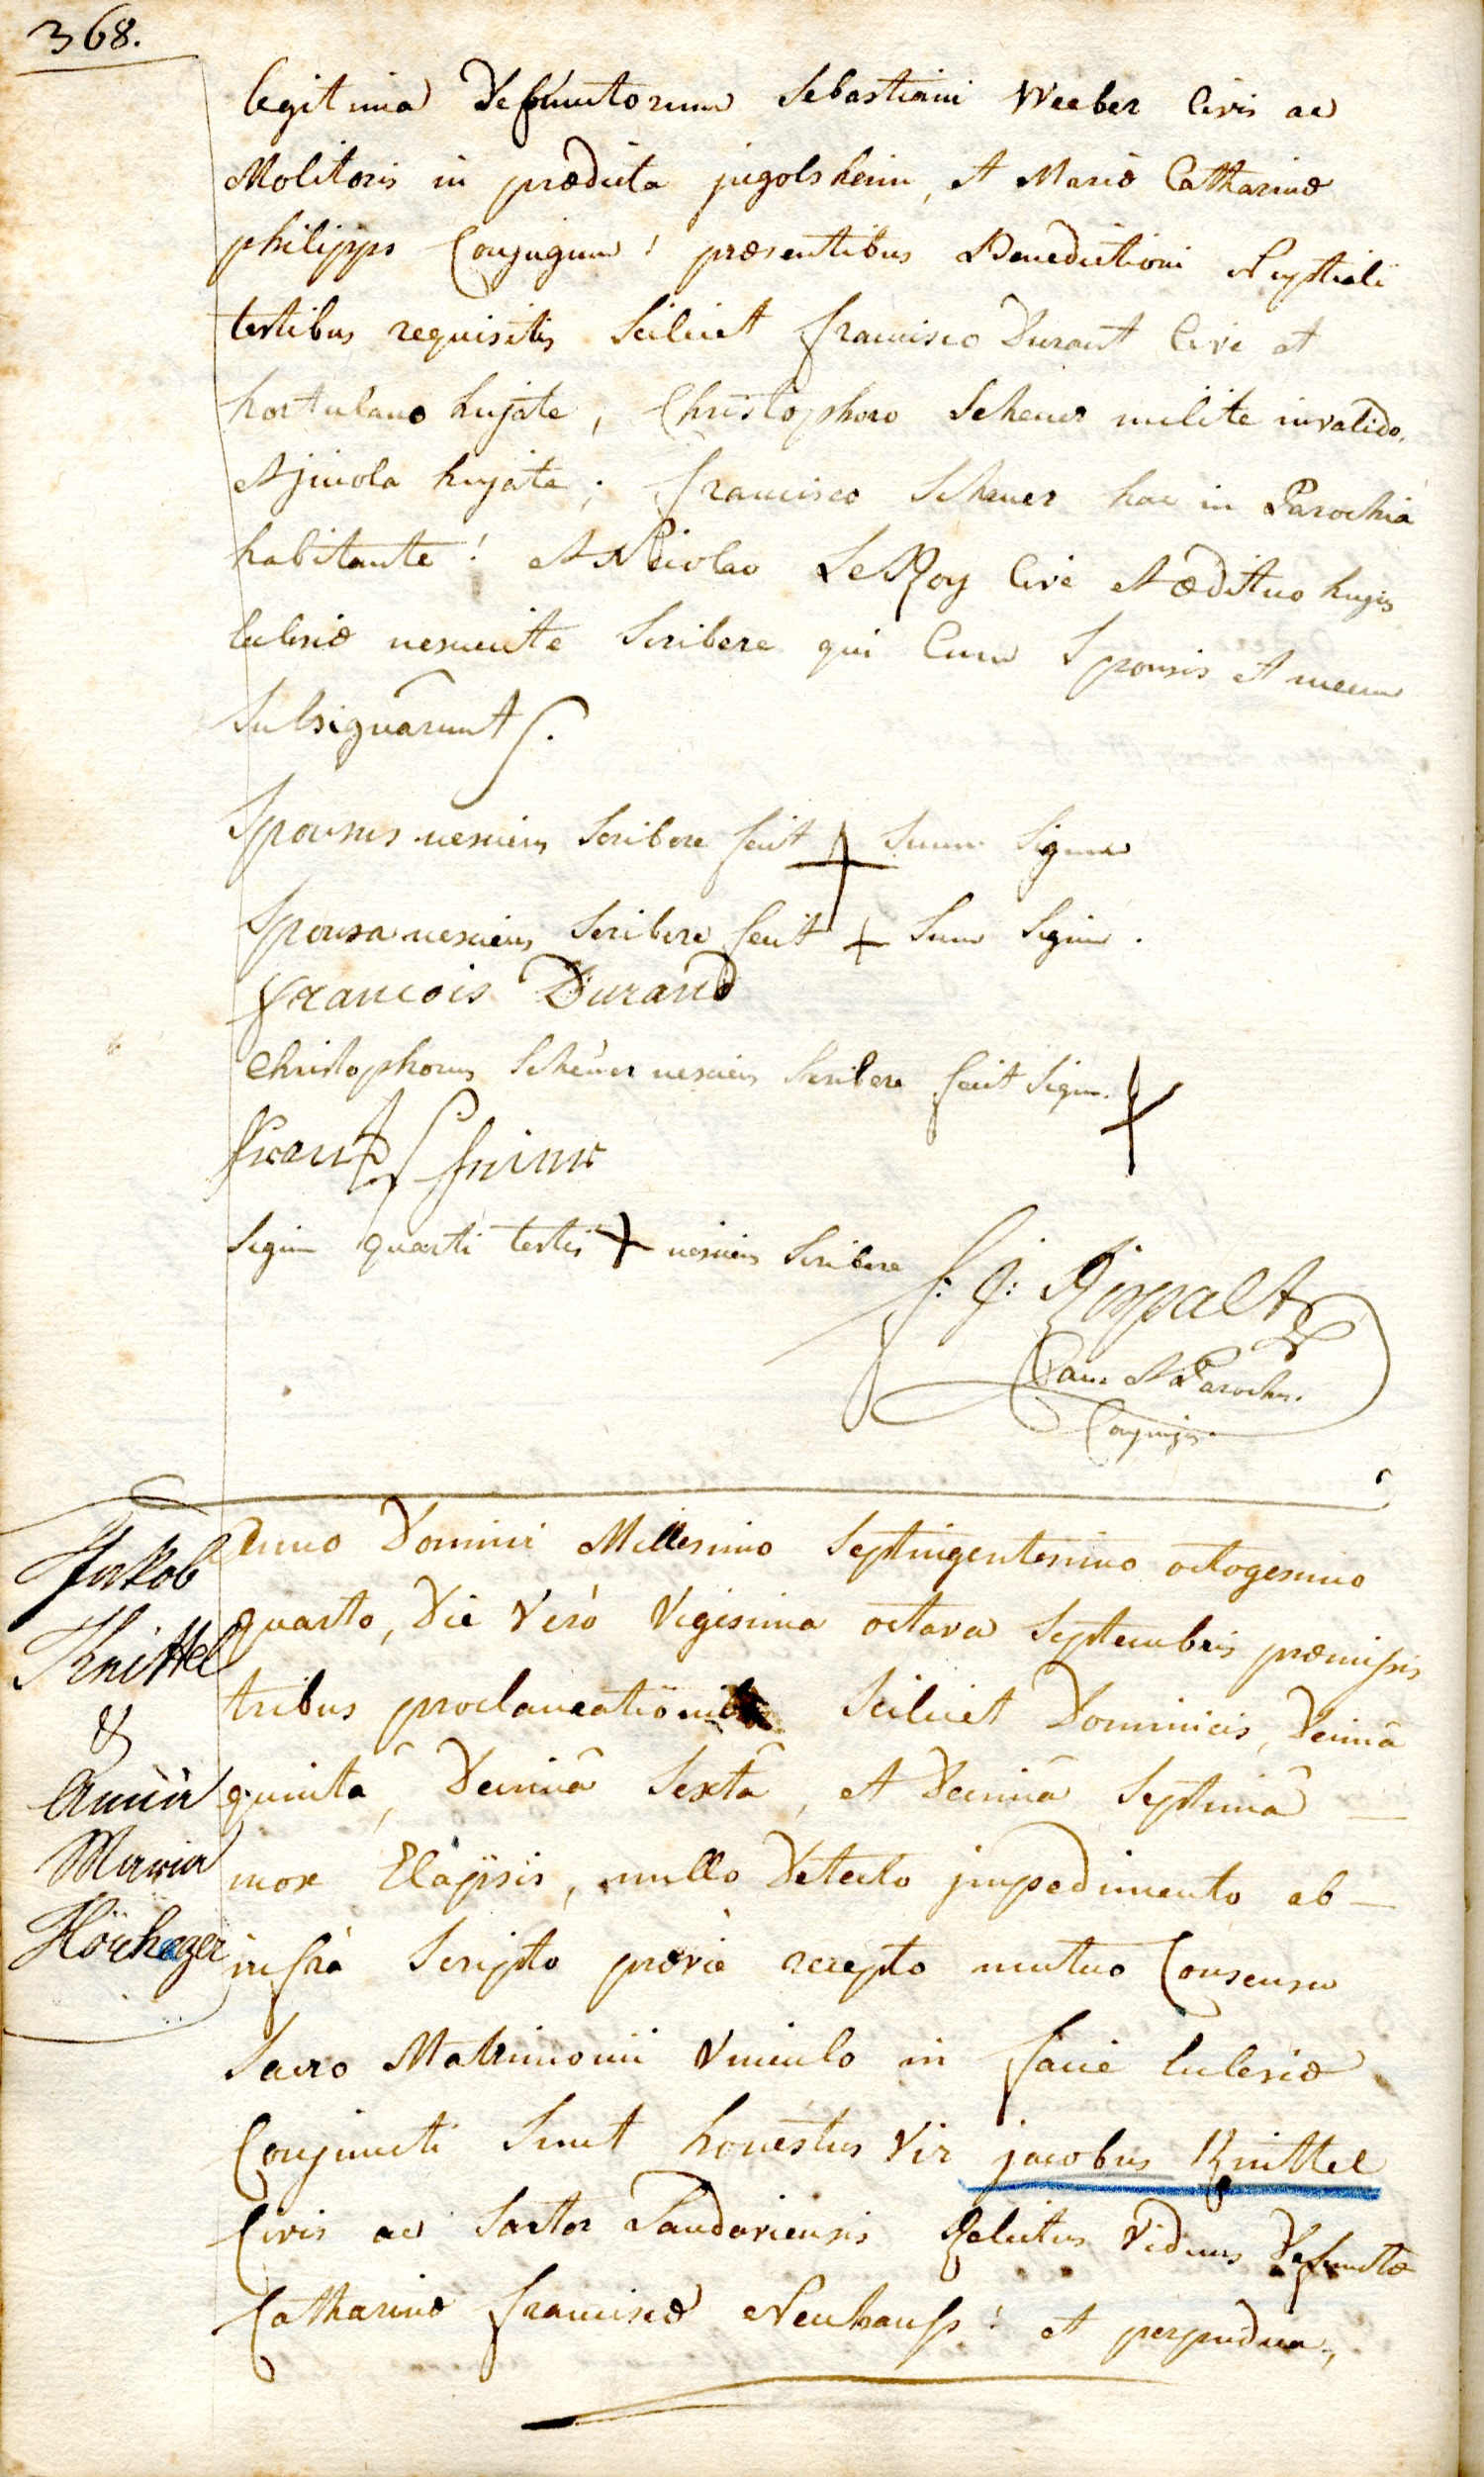 368.
legitima Defunctorum Sebastiani Weeber Civis ac
Molitoris in prædicta jugolsheim, et Mariæ Catharinæ
philipps Conjugum! præsentibus Benedictioni Nuptiali
testibus requisitis Scilicet francisco Durant Cive et
hortulano hujate, Christophoro Scheuer milite invalido,
et jncola hujate; francisco Scheuer hac in Parochia
habitante! et Nicolao LeRoy Cive et ædituo hujus
Ecclesiæ nesciente Scribere qui Cum Sponsis et mecum
Subsignarunt.
Sponsus nesciens Scribere fecit + Suum Signum
Sponsa nesciens Scribere fecit + Suum Signum.
francois Durand
Christophorus Scheüer nesciens Scribere fecit Signum. +
Frantz
Signum quarti testis + nesciens Scribere
f: j: Rispalt
Can. et Parochus.
Jakob
Knittel
&
Anna
Maria
Anno Domini Millesimo Septingentesimo octogesimo
quarto, Die Verò Vigesima octava Septembris præmissis
tribus proclamationib Scilicet Dominicis, Decimâ
quintâ, Decimâ Sextâ, et Decimâ Septimâ —
mox Elapsis, nullo Detecto jmpedimento ab —
infrà Scripto præviè recepto mutuo Consensu
Sacro Matrimonii Vinculo in facie Ecclesiæ
Conjuncti Sunt honestus Vir jacobus Knittel
Civis ac Sartor Landaviensis Relictus Viduus Defunctæ
Catharinæ franciscæ Neuhauss! et perpudica,